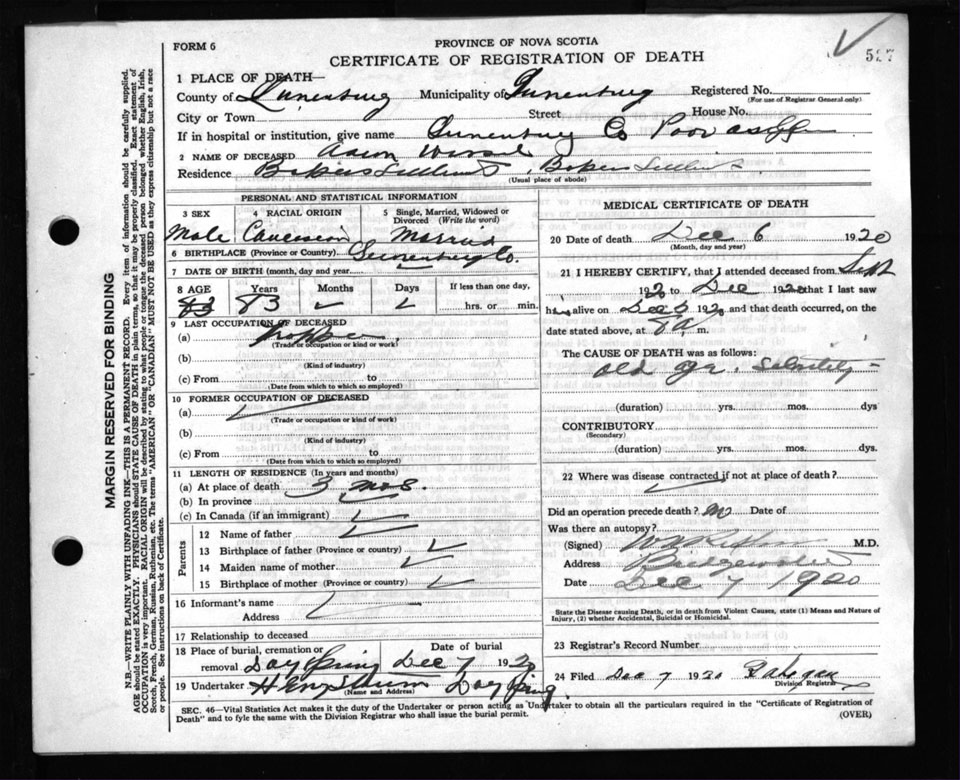 FORM 6
PROVINCE OF NOVA SCOTIA
CERTIFICATE OF REGISTRATION OF DEATH
1 PLACE OF DEATH—
County of Lunenburg Municipality of Lunenburg Registered No.
(For use of Registrar General only)
City or Town Street House No.
If in hospital or institution, give name Lunenburg Co Poor
2 NAME OF DECEASED Aaron
Residence
(Usual place of abode)
MARGIN RESERVED FOR BINDING
N.B.—WRITE PLAINLY WITH UNFADING INK—THIS IS A PERMANENT RECORD. Every item of information should be carefully supplied.
AGE should be stated EXACTLY. PHYSICIANS should STATE CAUSE OF DEATH in plain terms, so that it may be properly classified. Exact statement of
OCCUPATION is very important. RACIAL ORIGIN will be described by stating to what people or tongue the deceased person belonged whether English, Irish,
Scotch, French, German, Russian, Ruthenian, etc. The terms "AMERICAN" or "CANADIAN" MUST NOT BE USED as they express citizenship but not a race
or people. See instructions on back of Certificate.
PERSONAL AND STATISTICAL INFORMATION
3 SEX 4 RACIAL ORIGIN 5 Single, Married, Widowed or
Divorced (Write the word)
Male Caucasian Married
6 BIRTHPLACE (Province or Country) Lunenburg Co.
7 DATE OF BIRTH (month, day and year)
8 AGE Years Months Days If less than one day,
83 83 hrs. or min.
9 LAST OCCUPATION OF DECEASED
(a)
(Trade or occupation or kind or work)
(b)
(Kind of industry)
(c) From to
(Date from which to which so employed)
10 FORMER OCCUPATION OF DECEASED
(a)
(Trade or occupation or kind of work)
(b)
(Kind of industry)
(c) From to
(Date from which to which so employed)
11 LENGTH OF RESIDENCE (In years and months)
(a) At place of death 3 mos.
(b) In province
(c) In Canada (if an immigrant)
Parents
12 Name of father
13 Birthplace of father (Province or country)
14 Maiden name of mother
15 Birthplace of mother (Province or country)
16 Informant's name
Address
17 Relationship to deceased
18 Place of burial, cremation or Date of burial
removal Day Spring Dec 7 1920
19 Undertaker Day Spring
(Name and Address)
MEDICAL CERTIFICATE OF DEATH
20 Date of death Dec 6 1920
(Month, day and year)
21 I HEREBY CERTIFY, that I attended deceased from Sept
1920 to Dec 1920 that I last saw
h alive on Dec 1920 and that death occurred, on the
date stated above, at m.
The CAUSE OF DEATH was as follows:
old age.
(duration) yrs. mos. dys
CONTRIBUTORY
(Secondary)
(duration) yrs. mos. dys.
22 Where was disease contracted if not at place of death?
Did an operation precede death? no Date of
Was there an autopsy?
(Signed) M.D.
Address Bridgewater
Date Dec 7 1920
State the Disease causing Death, or in death from Violent Causes, state (1) Means and Nature of
Injury, (2) whether Accidental, Suicidal or Homicidal.
23 Registrar's Record Number
24 Filed Dec 7 1920
Division Registrar
SEC. 46—Vital Statistics Act makes it the duty of the Undertaker or person acting as Undertaker to obtain all the particulars required in the "Certificate of Registration of
Death" and to fyle the same with the Division Registrar who shall issue the burial permit. (OVER)